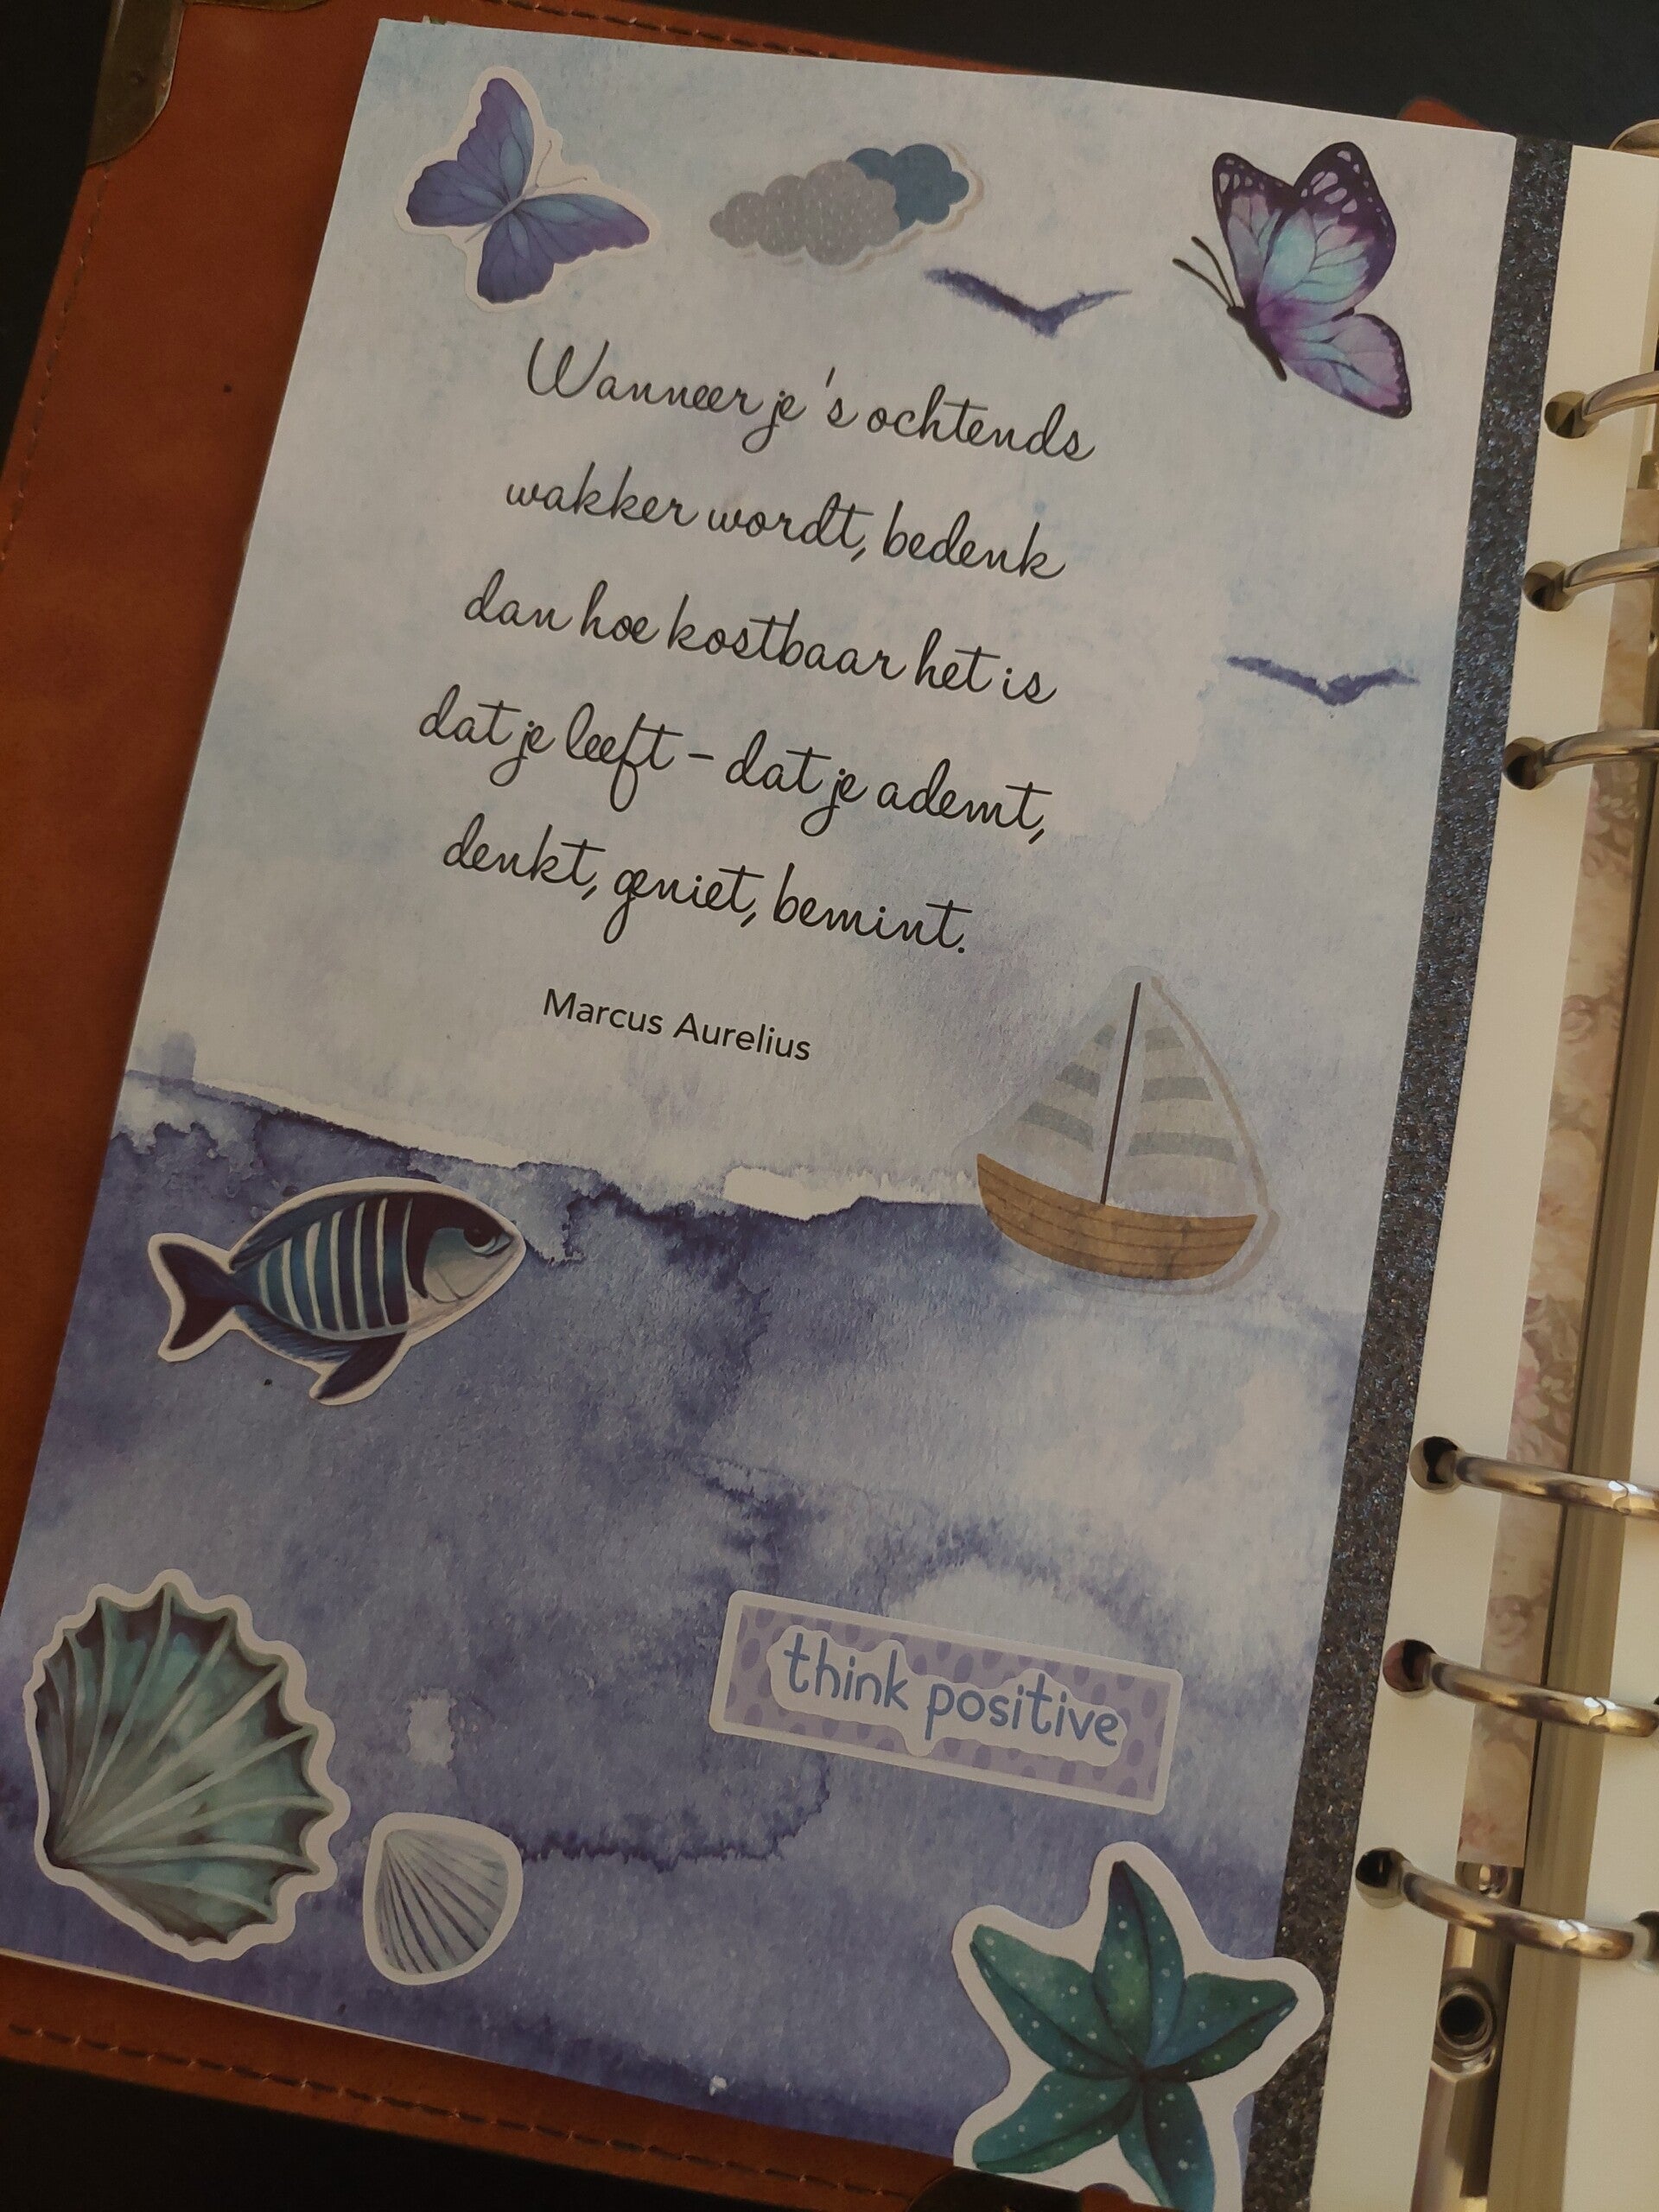 Wanneer je 's ochtends
wakker wordt, bedenk
dan hoe kostbaar het is
dat je leeft – dat je ademt,
denkt, geniet, bemint.
Marcus Aurelius
think positive